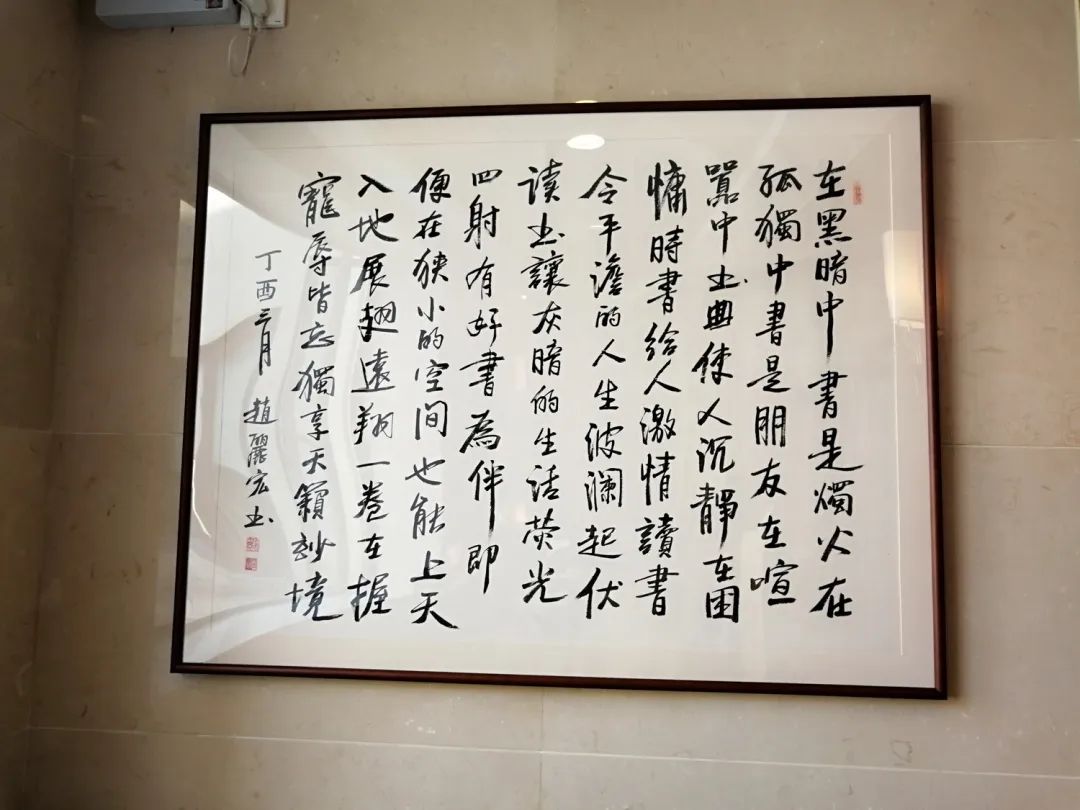 在黑暗中書是燭火在
孤獨中書是朋友在喧
囂中书典使人沉靜在困
慵時書給人激情讀書
令平澹的人生波瀾起伏
读书讓灰暗的生活荧光
四射有好書為伴即
便在狹小的空间也能上天
入地展翅遠翔一卷在握
寵辱皆忘獨享天籟妙境
丁酉三月
趙麗宏书